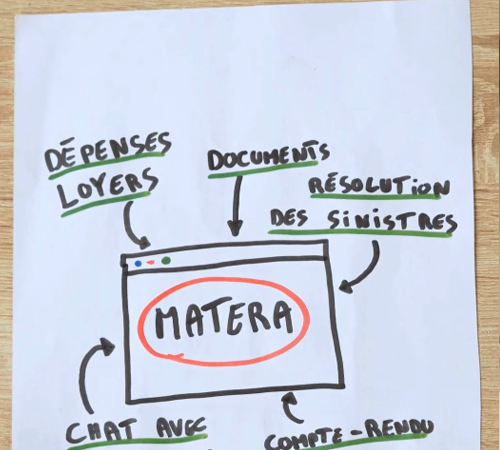 DÉPENSES
LOYERS
DOCUMENTS
RÉSOLUTION
DES SINISTRES
MATERA
CHAT AVEC
COMPTE-RENDU